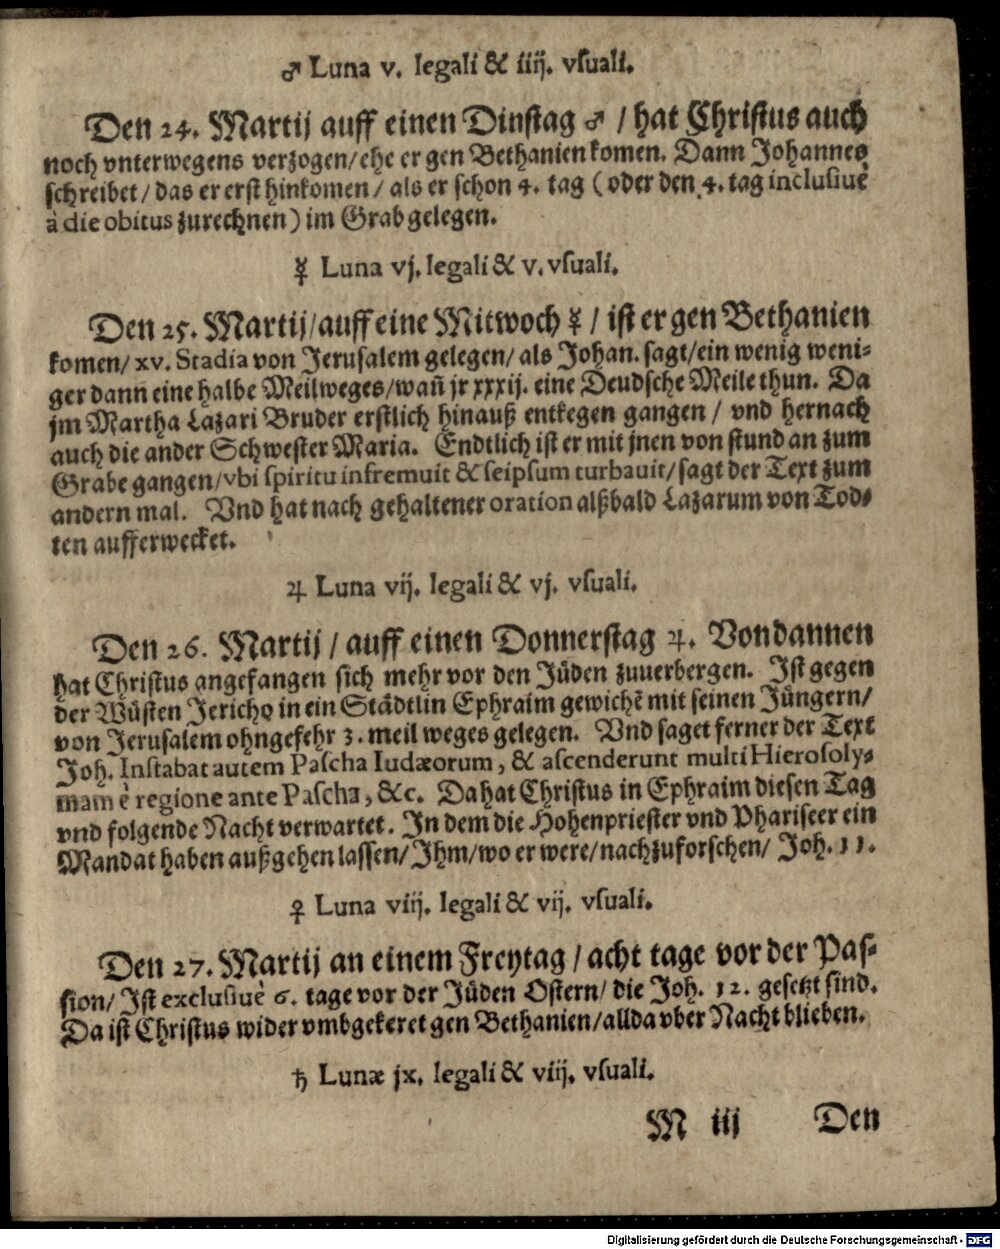 ♂ Luna v. legali & iiij. vſuali.
Den 24. Martij auff einen Dinſtag ♂ / hat Chriſtus auch
noch vnterwegens verzogen/ehe er gen Bethanien komen. Dann Johannes
ſchreibet/ das er erſt hinkomen/ als er ſchon 4. tag (oder den 4. tag incluſiuè
à die obitus zurechnen) im Grab gelegen.
☿ Luna vj. legali & v. vſuali.
Den 25. Martij/auff eine Mitwoch ☿ / iſt er gen Bethanien
komen/ xv. Stadia von Jeruſalem gelegen/ als Johan. ſagt/ein wenig weni-
ger dann eine halbe Meilweges/wañ jr xxxij. eine Deudſche Meile thun. Da
jm Martha Lazari Bruder erſtlich hinauß entkegen gangen / vnd hernach
auch die ander Schweſter Maria. Endtlich iſt er mit jnen von ſtund an zum
Grabe gangen/vbi ſpiritu infremuit & ſeipſum turbauit/ſagt der Text zum
andern mal. Vnd hat nach gehaltener oration alßbald Lazarum von Tod-
ten aufferwecket.
♃ Luna vij. legali & vj. vſuali.
Den 26. Martij / auff einen Donnerſtag ♃. Von dannen
hat Chriſtus angefangen ſich mehr vor den Jüden zuuerbergen. Iſt gegen
der Wüſten Jericho in ein Städtlin Ephraim gewichẽ mit ſeinen Jüngern/
von Jeruſalem ohngefehr 3. meil weges gelegen. Vnd ſaget ferner der Text
Joh. Inſtabat autem Paſcha Iudæorum, & aſcenderunt multi Hieroſoly-
mam è regione ante Paſcha, &c. Da hat Chriſtus in Ephraim dieſen Tag
vnd folgende Nacht verwartet. In dem die Hohenprieſter vnd Phariſeer ein
Mandat haben außgehen laſſen/ Ihm/wo er were/nachzuforſchen/ Joh. 11.
♀ Luna viij. legali & vij. vſuali.
Den 27. Martij an einem Freytag / acht tage vor der Paſ-
ſion/ Iſt excluſiuè 6. tage vor der Jüden Oſtern/ die Joh. 12. geſetzt ſind.
Da iſt Chriſtus wider vmbgekeret gen Bethanien/allda vber Nacht blieben.
♄ Lunæ jx. legali & viij. vſuali.
M iij Den
Digitalisierung gefördert durch die Deutsche Forschungsgemeinschaft - DFG